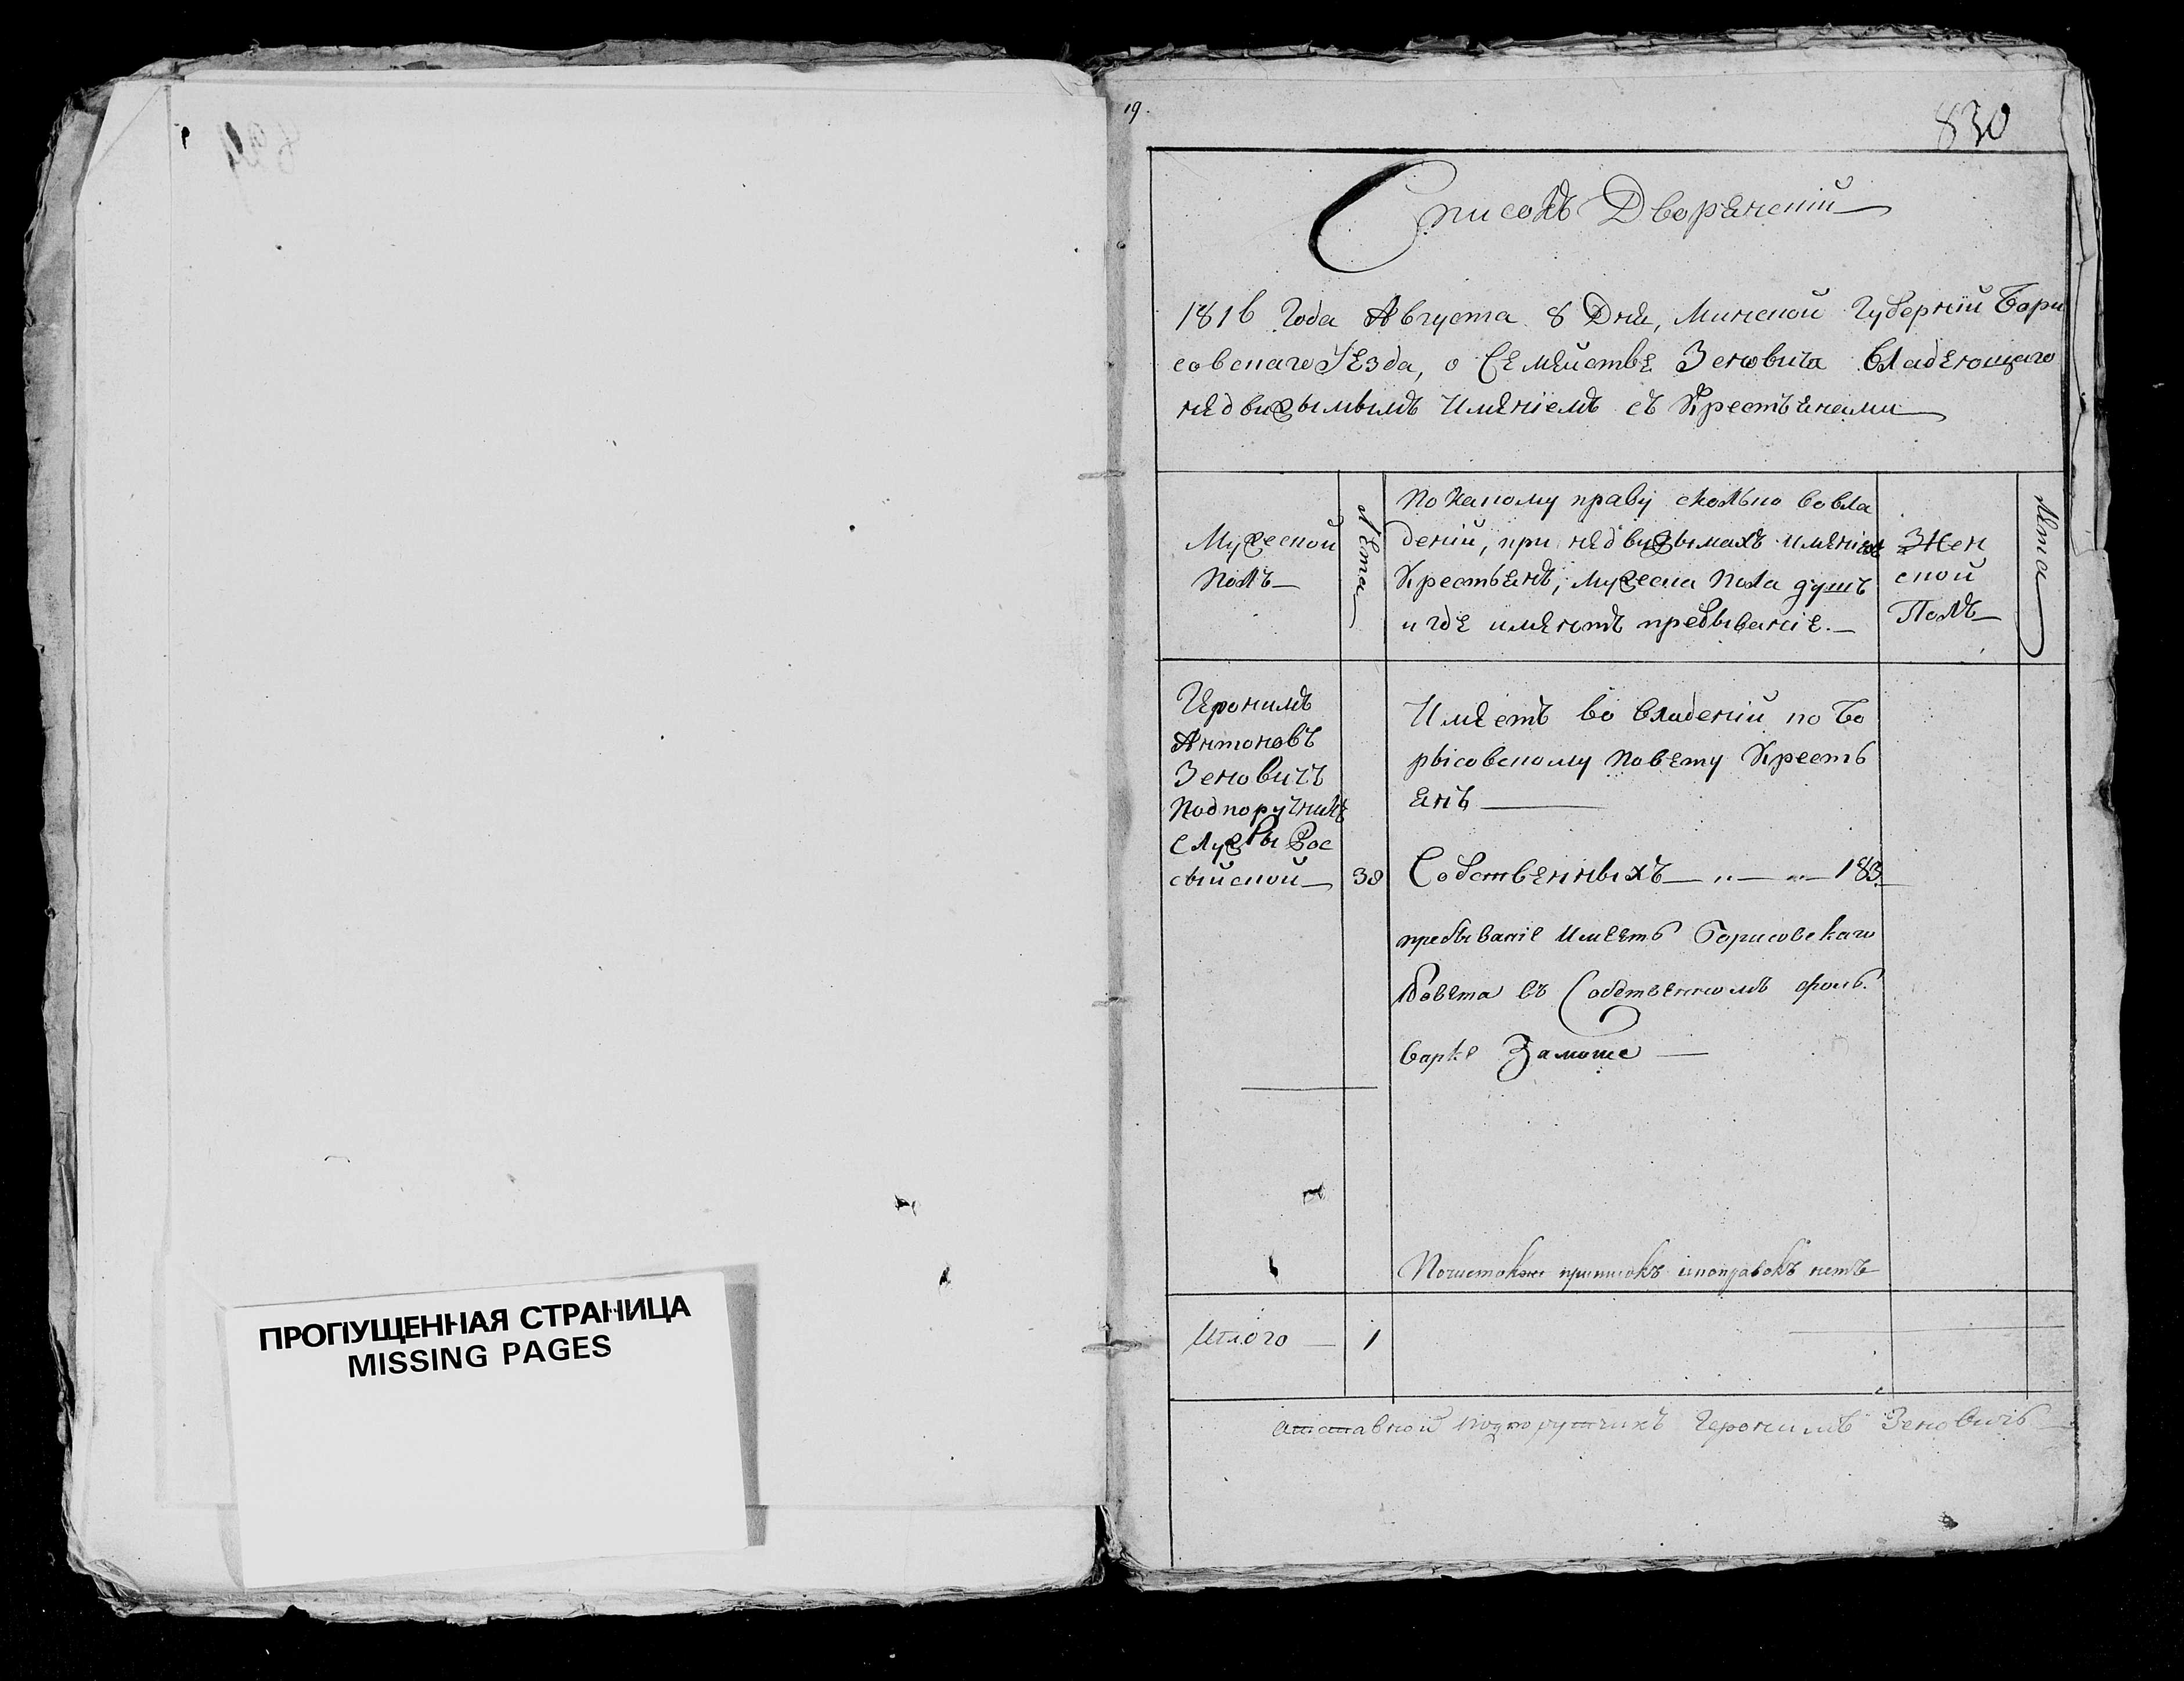 ПРОПУЩЕННАЯ СТРАНИЦА
MISSING PAGES
19.
830
Списокъ Дворянский
1816 Года Августа 8 Дня, Минской Губерній Бори
совскаго Уезда, о Семействе Зеновича владеющаго
недвижымымъ Именіемъ съ Крестьянами
Мужеской
Полъ
Лета
По какому праву сколько во вла
деній, при недвижымахъ именіях
Крестьянъ, мужеска пола душъ
и где имеютъ пребываніе.
Жен
ской
Полъ
Лета
Иеронимъ
Антоновъ
Зеновичъ
Подпоручникъ
Службы Рос
сыйской
38
Имеетъ во владеній по Бо
рысовскому Повету Кресть
янъ
Собственныхъ — „ — „ — 183
пребываніе Имеетъ Борисовскаго
Повета въ Собственномъ фоль
варке Замоше
приписокъ ипоправокъ нетъ
Итого 1
атставной подпорутчикъ Иеронимъ Зеновичъ